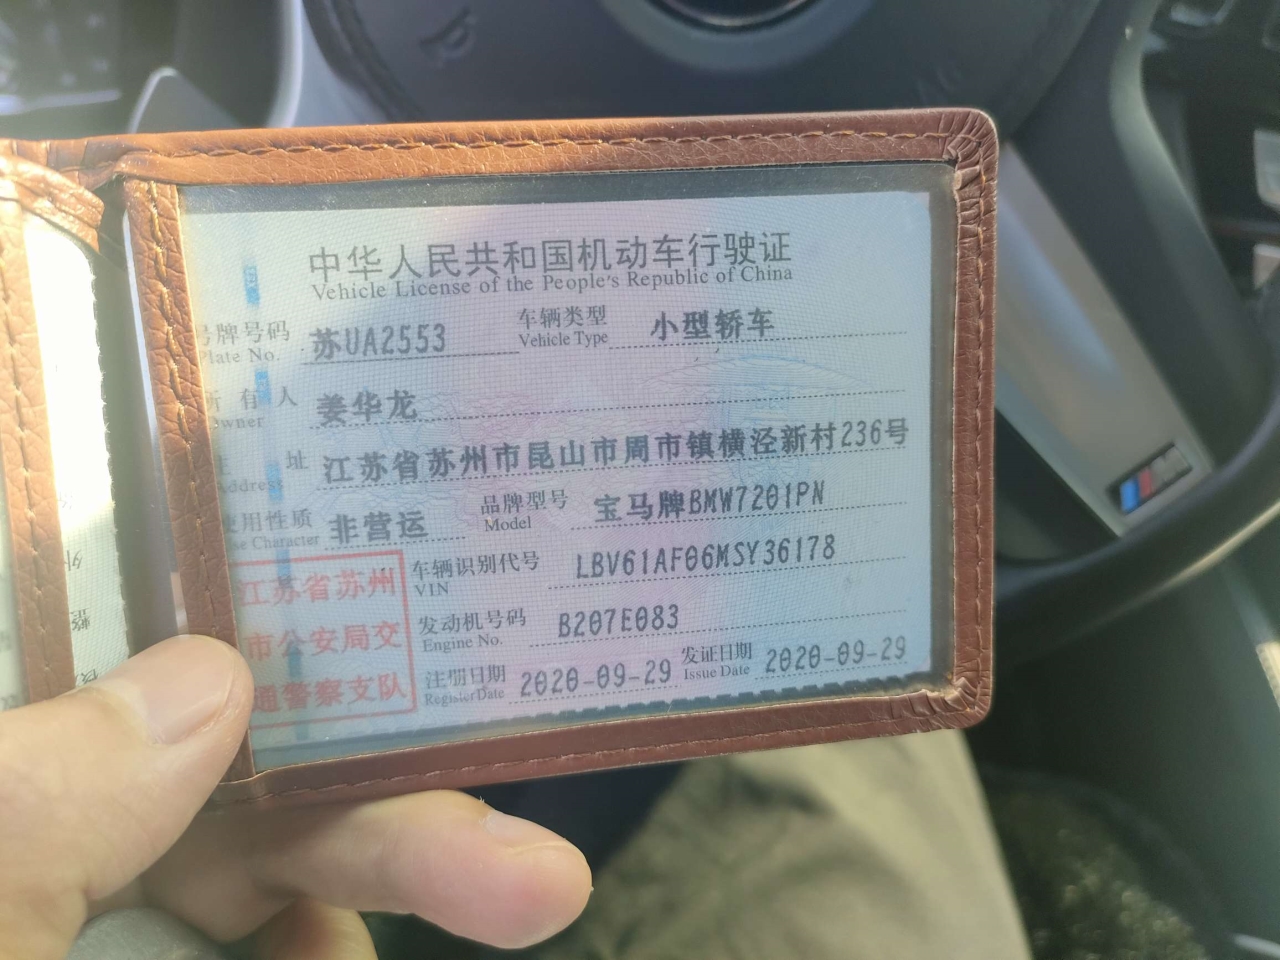 中华人民共和国机动车行驶证
Vehicle License of the People's Republic of China
号牌号码 苏UA2553 车辆类型 小型轿车
Plate No. Vehicle Type
所有人 姜华龙
Owner
住址 江苏省苏州市昆山市周市镇横泾新村236号
Address
使用性质 非营运 品牌型号 宝马牌BMW7201PN
Use Character Model
车辆识别代号 LBV61AF06MSY36178
VIN
发动机号码 B207E083
Engine No.
注册日期 2020-09-29 发证日期 2020-09-29
Register Date Issue Date
江苏省苏州
市公安局交
通警察支队